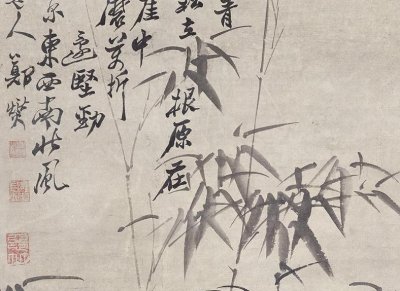 青
立根原在
崖中
磨萬折
還堅勁
東西南北風
人鄭燮